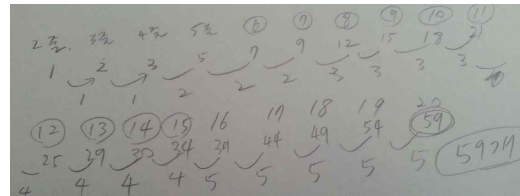 2줄. 3줄 4줄 5줄 6 7 8 9 10 11
1 2 3 5 7 9 12 15 18 21
1 1 2 2 2 3 3 3 3
12 13 14 15 16 17 18 19 20
25 29 30 34 39 44 49 54 59
4 4 4 4 5 5 5 5 5 59개